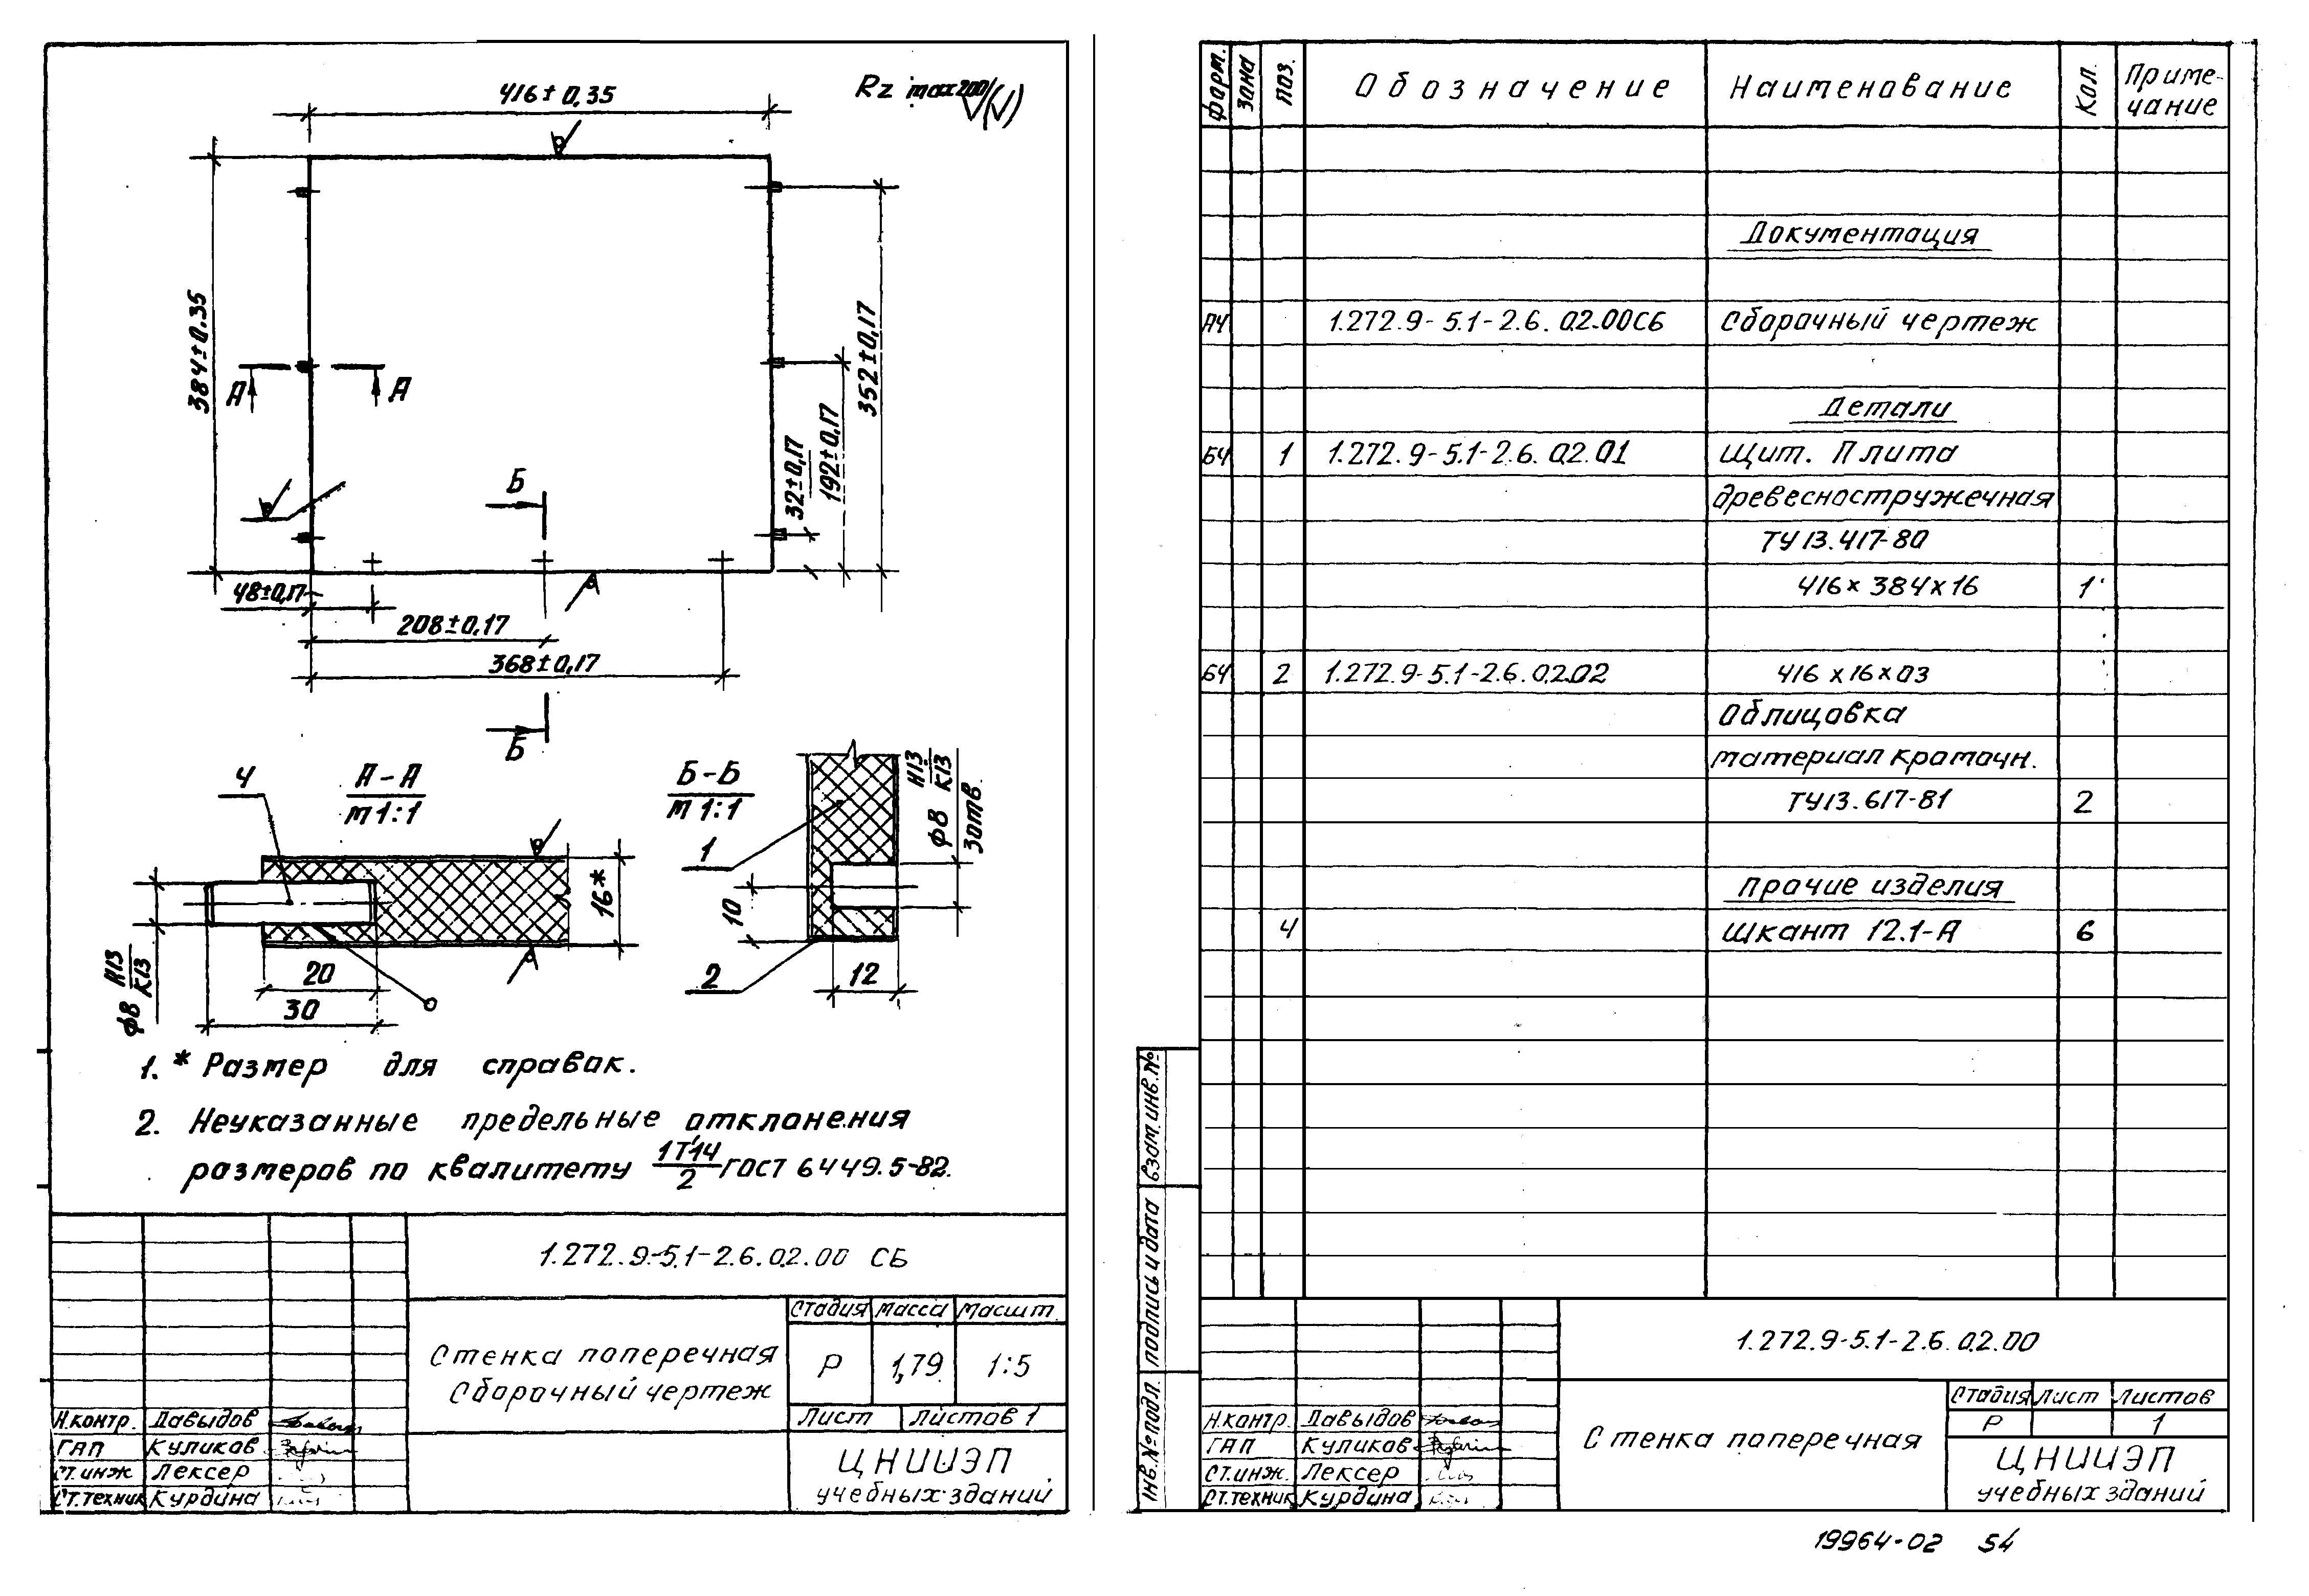 416±0,35
Rz max 200 √(√)
384±0.35
А
А
Б
32±0,17
192±0,17
352±0,17
48±0,17
208±0,17
368±0,17
Б
4
А-А
м 1:1
Б-Б
м 1:1
1
ф8 H13/К13
3отв.
16*
10
20
30
ф8 H13/К13
2
12
1. * Размер для справок.
2. Неуказанные предельные отклонения
размеров по квалитету IT14/2 ГОСТ 6449.5-82.
1.272.9-5.1-2.6.02.00 СБ
Стенка поперечная
Сборочный чертеж
Стадия Масса Масшт.
Р 1,79 1:5
Лист Листов 1
Н.контр. Давыдов
ГАП Куликов
Ст.инж Лексер
Ст.техник Курдина
ЦНИИЭП
учебных зданий
Форм. Зона Поз. Обозначение Наименование Кол. Приме-
чание
Документация
А4 1.272.9-5.1-2.6.02.00СБ Сборочный чертеж
Детали
БЧ 1 1.272.9-5.1-2.6.02.01 Щит. Плита
древесностружечная
ТУ 13.417-80
416х384х16 1
БЧ 2 1.272.9-5.1-2.6.02.02 416х16х03
Облицовка
материал кромочн.
ТУ13.617-81 2
Прочие изделия
4 Шкант 12.1-А 6
Взам.инв.№
Подпись и дата
Инв.№подл.
1.272.9-5.1-2.6.02.00
Стенка поперечная
Стадия Лист Листов
Р 1
Н.контр. Давыдов
ГАП Куликов
Ст.инж. Лексер
Ст.техник Курдина
ЦНИИЭП
учебных зданий
19964-02 54